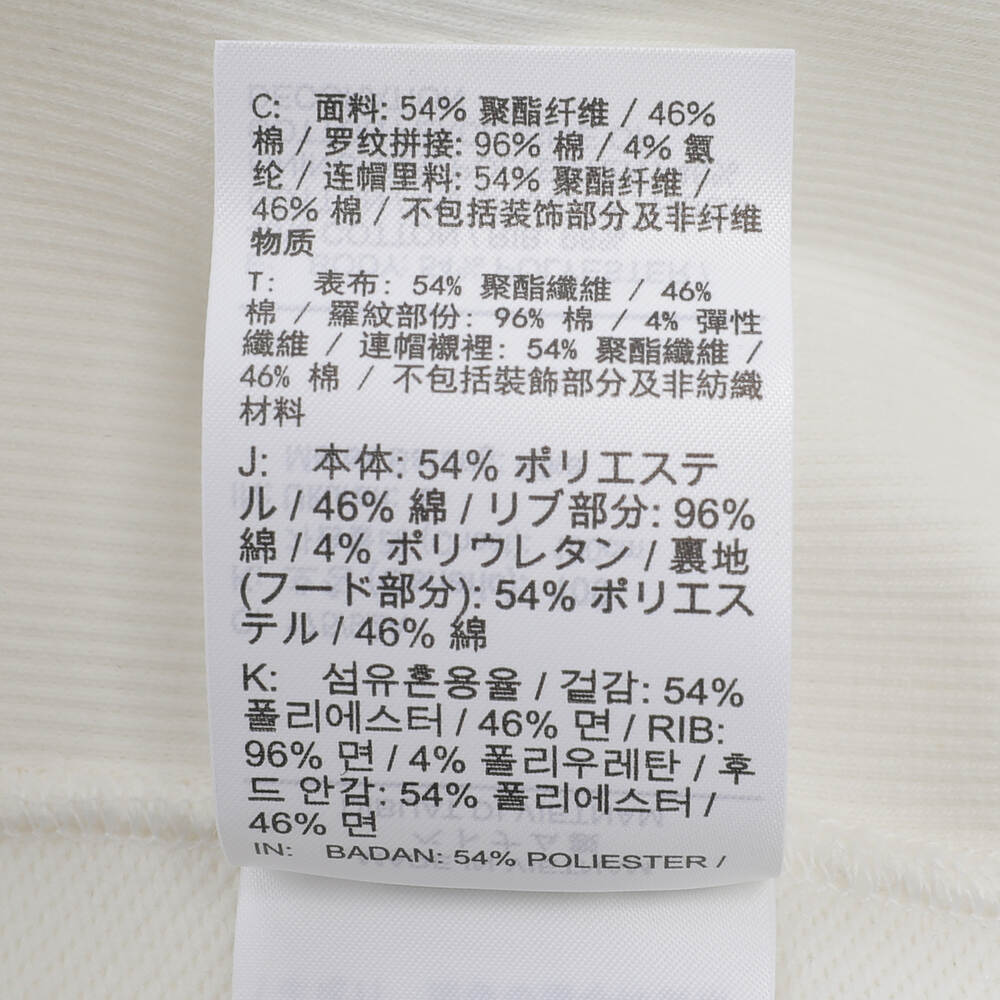 C: 面料: 54% 聚酯纤维 / 46%
棉 / 罗纹拼接: 96% 棉 / 4% 氨
纶 / 连帽里料: 54% 聚酯纤维 /
46% 棉 / 不包括装饰部分及非纤维
物质
T: 表布: 54% 聚酯纖維 / 46%
棉 / 羅紋部份: 96% 棉 / 4% 彈性
纖維 / 連帽襯裡: 54% 聚酯纖維 /
46% 棉 / 不包括裝飾部分及非紡織
材料
J: 本体: 54% ポリエステ
ル / 46% 綿 / リブ部分: 96%
綿 / 4% ポリウレタン / 裏地
(フード部分): 54% ポリエス
テル / 46% 綿
K: 섬유혼용율 / 겉감: 54%
폴리에스터 / 46% 면 / RIB:
96% 면 / 4% 폴리우레탄 / 후
드 안감: 54% 폴리에스터 /
46% 면
IN: BADAN: 54% POLIESTER /